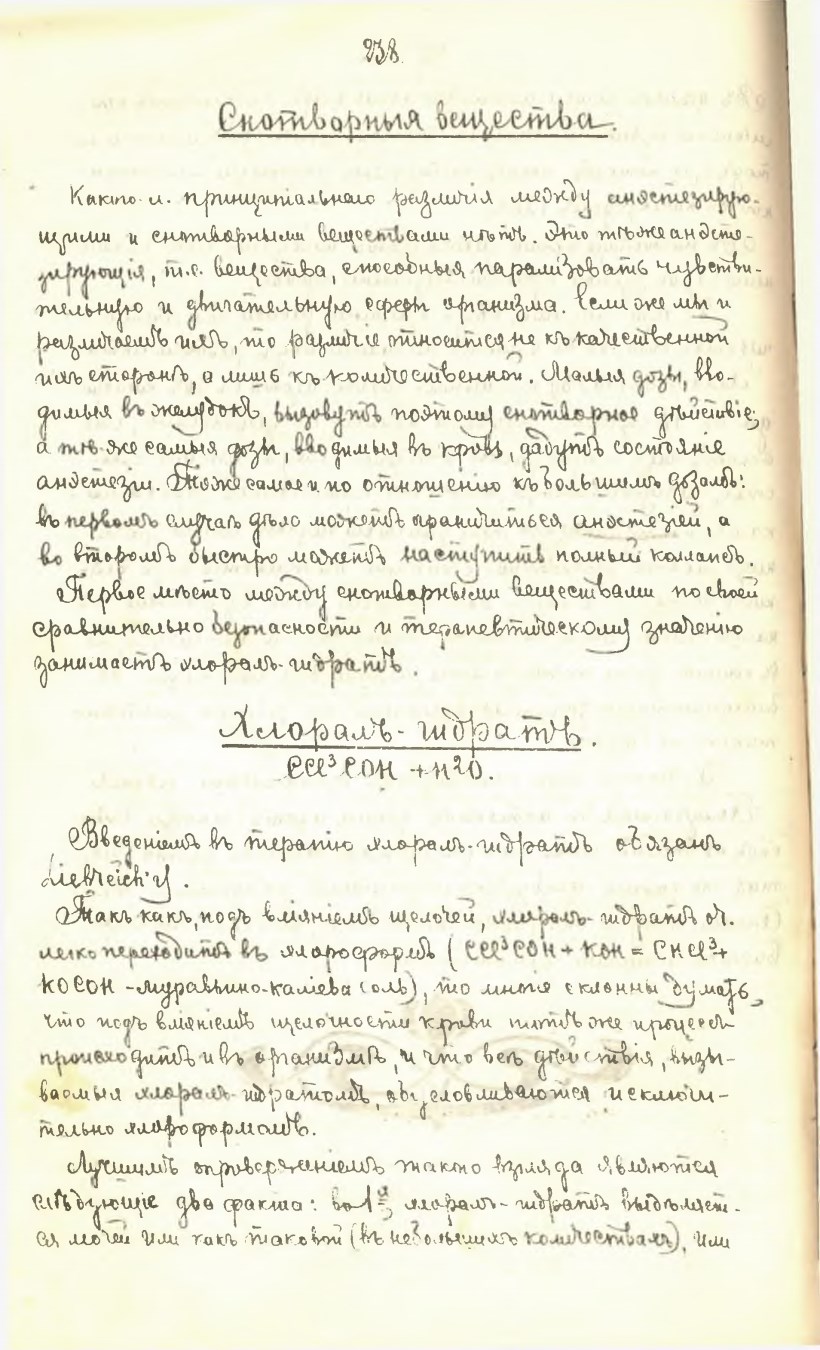 238
Снотворныя вещества.
Какого-л. принципіальнаго различія между анэстезирую-
щими и снотворными веществами нѣтъ. Это тѣ же анэсте-
зирующія, т.е. вещества, способныя парализовать чувстви-
тельную и двигательную сферы организма. Если же мы и
различаемъ ихъ, то различіе относится не къ качественной
ихъ сторонѣ, а лишь къ количественной. Малыя дозы, вво-
димыя въ желудокъ, вызовутъ поэтому снотворное дѣйствіе,
а тѣ же самыя дозы, вводимыя въ кровь, дадутъ состояніе
анэстезіи. Тоже самое и по отношенію къ большимъ дозамъ:
въ первомъ случаѣ дѣло можетъ ограничиться анэстезіей, а
во второмъ быстро можетъ наступить полный коллапсъ.
Первое мѣсто между снотворными веществами по своей
сравнительно безопасности и терапевтическому значенію
занимаетъ хлоралъ-гидратъ.
Хлоралъ-гидратъ.
CCl³COH + H²O.
Введеніемъ въ терапію хлоралъ-гидратъ обязанъ
Liebreich'у.
Такъ какъ, подъ вліяніемъ щелочей, хлоралъ-гидратъ оч.
легко переходитъ въ хлороформъ (CCl³COH + KOH = CHCl³+
KOCOH - муравьино-каліева соль), то многіе склонны думать,
что подъ вліяніемъ щелочности крови тотъ же процессъ
происходитъ и въ организмѣ, и что всѣ дѣйствія, вызы-
ваемыя хлоралъ-гидратомъ, обусловливаются исключи-
тельно хлороформомъ.
Лучшимъ опроверженіемъ такого взгляда являются
слѣдующіе два факта: во 1ыхъ, хлоралъ-гидратъ выдѣляет-
ся мочей или какъ таковой (въ небольшихъ количествахъ), или